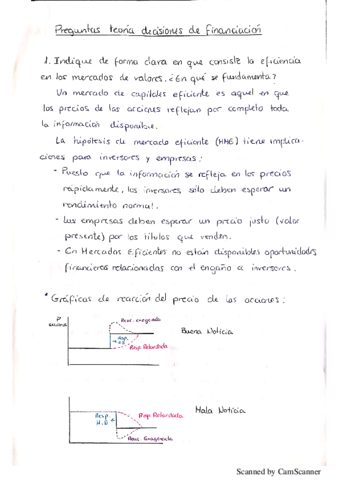 Preguntas teoría decisiones de financiación
1. Indique de forma clara en que consiste la eficiencia
en los mercados de valores. ¿En qué se fundamenta?
Un mercado de capitales eficiente es aquel en que
los precios de las acciones reflejan por completo toda
la información disponible.
La hipótesis de mercado eficiente (HME) tiene implica-
ciones para inversores y empresas:
- Puesto que la información se refleja en los precios
rápidamente, los inversores sólo deben esperar un
rendimiento normal.
- Las empresas deben esperar un precio justo (valor
presente) por los títulos que venden.
- En Mercados Eficientes no están disponibles oportunidades
financieras relacionadas con el engaño a inversores.
* Gráficas de reacción del precio de las acciones:
P
acción
Reac. exagerada
Resp.
Resp. Retardada
Buena Noticia
Resp.
Resp. Retardada
Reac. Exagerada
Mala Noticia
Scanned by CamScanner